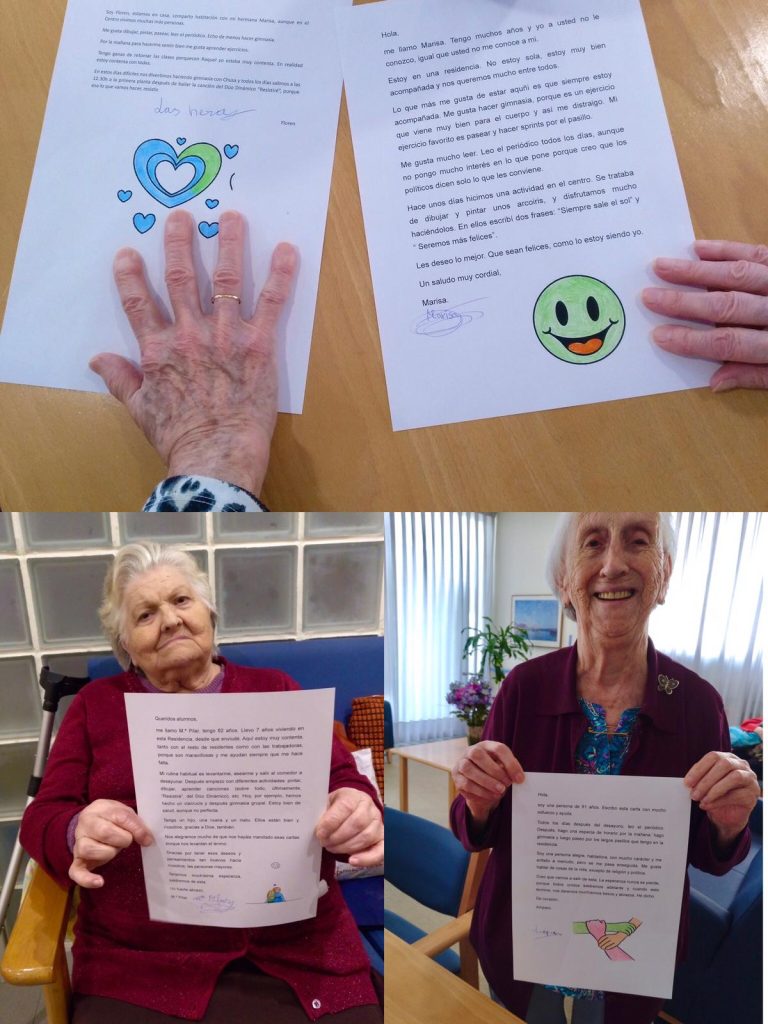 Soy Floren, estamos en casa, comparto habitación con mi hermana Marisa, aunque en el
Centro vivimos muchas más personas.
Me gusta dibujar, pintar, pasear, leer el periódico. Echo de menos hacer gimnasia.
Por la mañana para hacerme sentir bien me gusta aprender ejercicios.
Tengo ganas de retomar las clases porque con Raquel yo estaba muy contenta. En realidad
estoy contenta con todas.
En estos días difíciles nos divertimos haciendo gimnasia con Chusa y todos los días salimos a las
12.30h a la primera planta después de bailar la canción del Dúo Dinámico "Resistiré", porque
eso lo que vamos hacer, resistir.
Floren.
Hola,
me llamo Marisa. Tengo muchos años y yo a usted no le
conozco, igual que usted no me conoce a mi.
Estoy en una residencia. No estoy sola, estoy muy bien
acompañada y nos queremos mucho entre todos.
Lo que más me gusta de estar aquñi es que siempre estoy
acompañada. Me gusta hacer gimnasia, porque es un ejercicio
que viene muy bien para el cuerpo y así me distraigo. Mi
ejercicio favorito es pasear y hacer sprints por el pasillo.
Me gusta mucho leer. Leo el periódico todos los días, aunque
no pongo mucho interés en lo que pone porque creo que los
políticos dicen solo lo que les conviene.
Hace unos días hicimos una actividad en el centro. Se trataba
de dibujar y pintar unos arcoiris, y disfrutamos mucho
haciéndolos. En ellos escribí dos frases: "Siempre sale el sol" y
" Seremos más felices".
Les deseo lo mejor. Que sean felices, como lo estoy siendo yo.
Un saludo muy cordial,
Marisa.
Marisa
Queridos alumnos,
me llamo M.ª Pilar, tengo 82 años. Llevo 7 años viviendo en
esta Residencia, desde que enviudé. Aquí estoy muy contenta,
tanto con el resto de residentes como con las trabajadoras,
porque son maravillosas y me ayudan siempre que me hace
falta.
Mi rutina habitual es levantarme, asearme y salir al comedor a
desayunar. Después empiezo con diferentes actividades: pintar,
dibujar, aprender canciones (sobre todo, últimamente,
"Resistiré", del Dúo Dinámico), etc. Hoy, por ejemplo, hemos
hecho un and después gimnasia grupal. Estoy bien de
salud, aunque no perfecta.
Tengo un hijo, una nuera y un nieto. Ellos están bien y
nosotros, gracias a Dios, también.
Nos alegramos mucho de que nos hayáis mandado esas cartas
porque nos levantan el ánimo.
Gracias por tener esos deseos y
pensamientos tan buenos hacia
nosotros, las personas mayores.
Tenemos muchísima esperanza,
saldremos de esta.
Un fuerte abrazo,
M.ª Pilar
Hola,
soy una persona de 91 años. Escribo esta carta con mucho
esfuerzo y ayuda.
Todos los días después del desayuno, leo el periódico.
Después, hago una especie de horario por la mañana: hago
gimnasia y luego paseo por los largos pasillos que tengo en la
residencia.
Soy una persona alegre, habladora, con mucho carácter y me
enfado a menudo, pero se me pasa enseguida. Me gusta
hablar de cosas de la vida, excepto de religión y política.
De corazón,
Amparo.